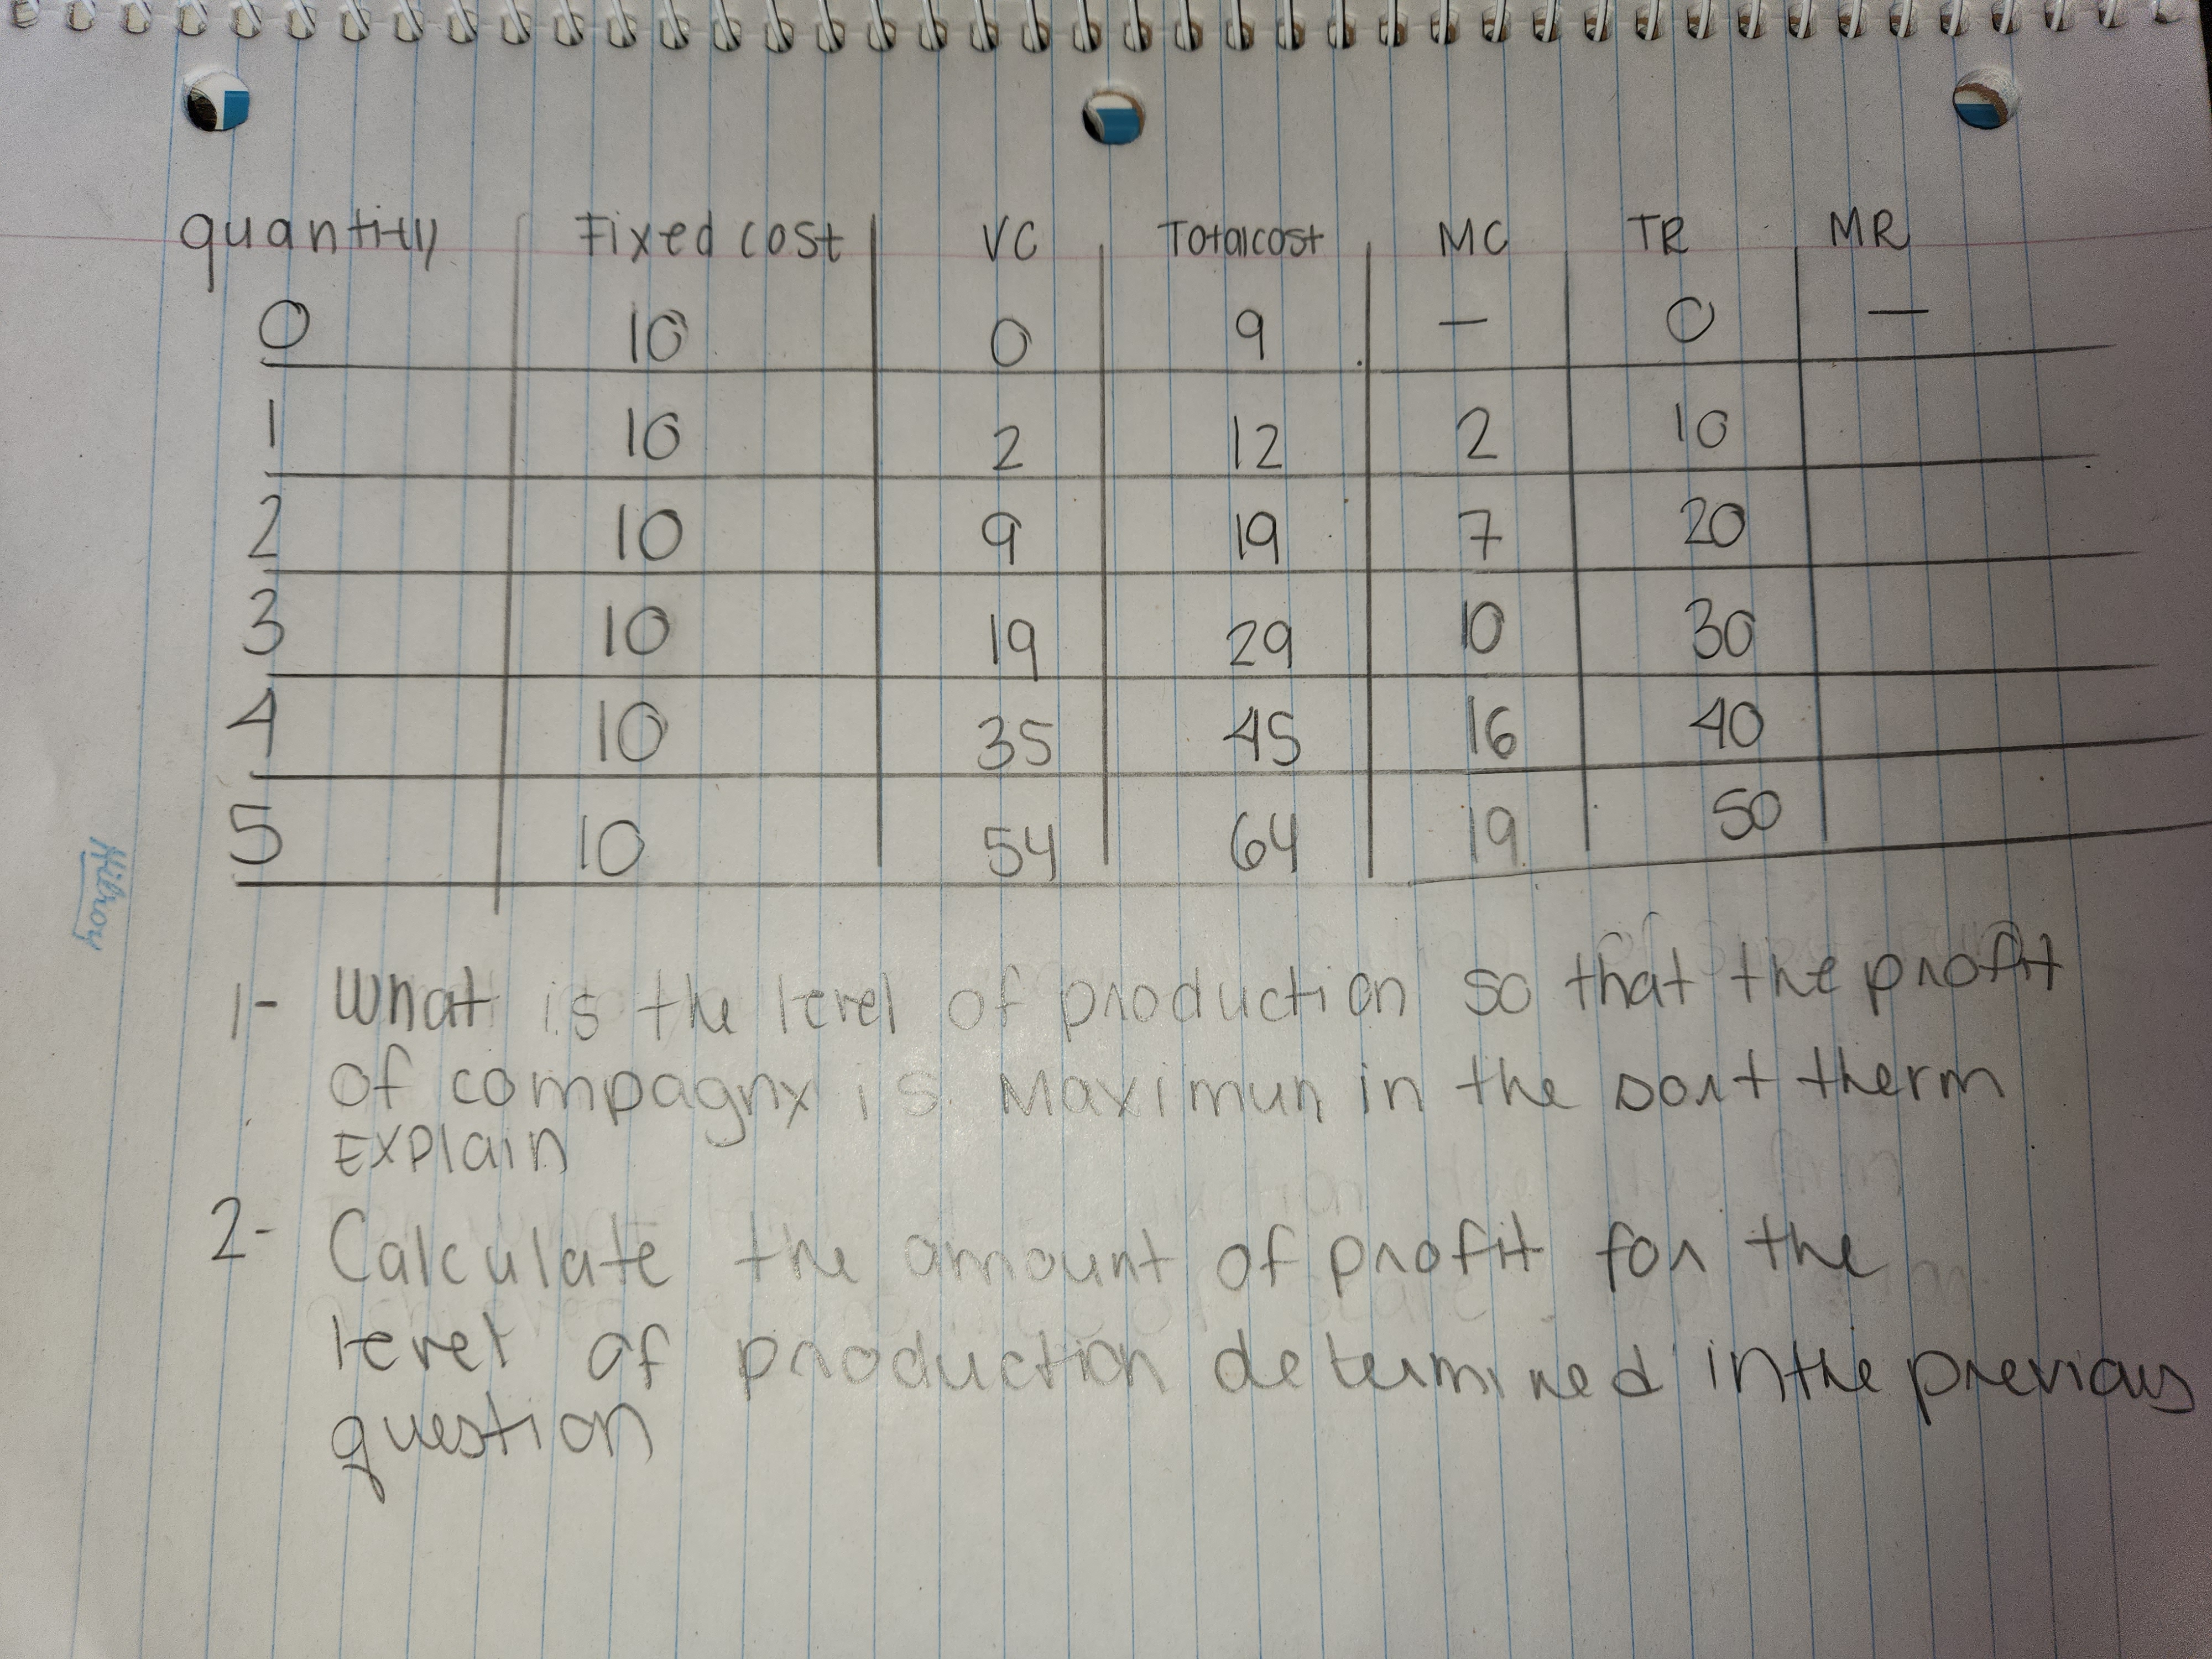 quantity Fixed cost VC Totalcost MC TR MR
0 10 0 9 — 0 —
1 10 2 12 2 10
2 10 9 19 7 20
3 10 19 29 10 30
4 10 35 45 16 40
5 10 54 64 19 50
Hilroy
1- What is the level of production so that the profit
of compagny is Maximun in the sort therm
Explain
2- Calculate the amount of profit for the
level of production determined in the previous
question